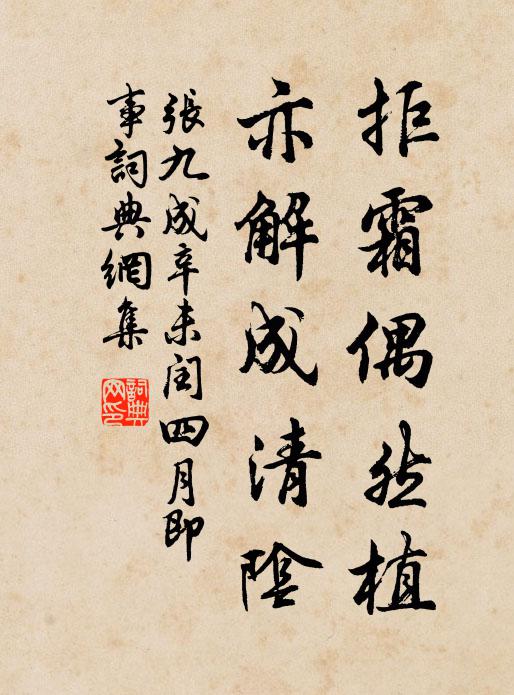 拒霜偶然植
亦解成清陰
張九成辛未閏四月即
事詞典網集
詞典
网印